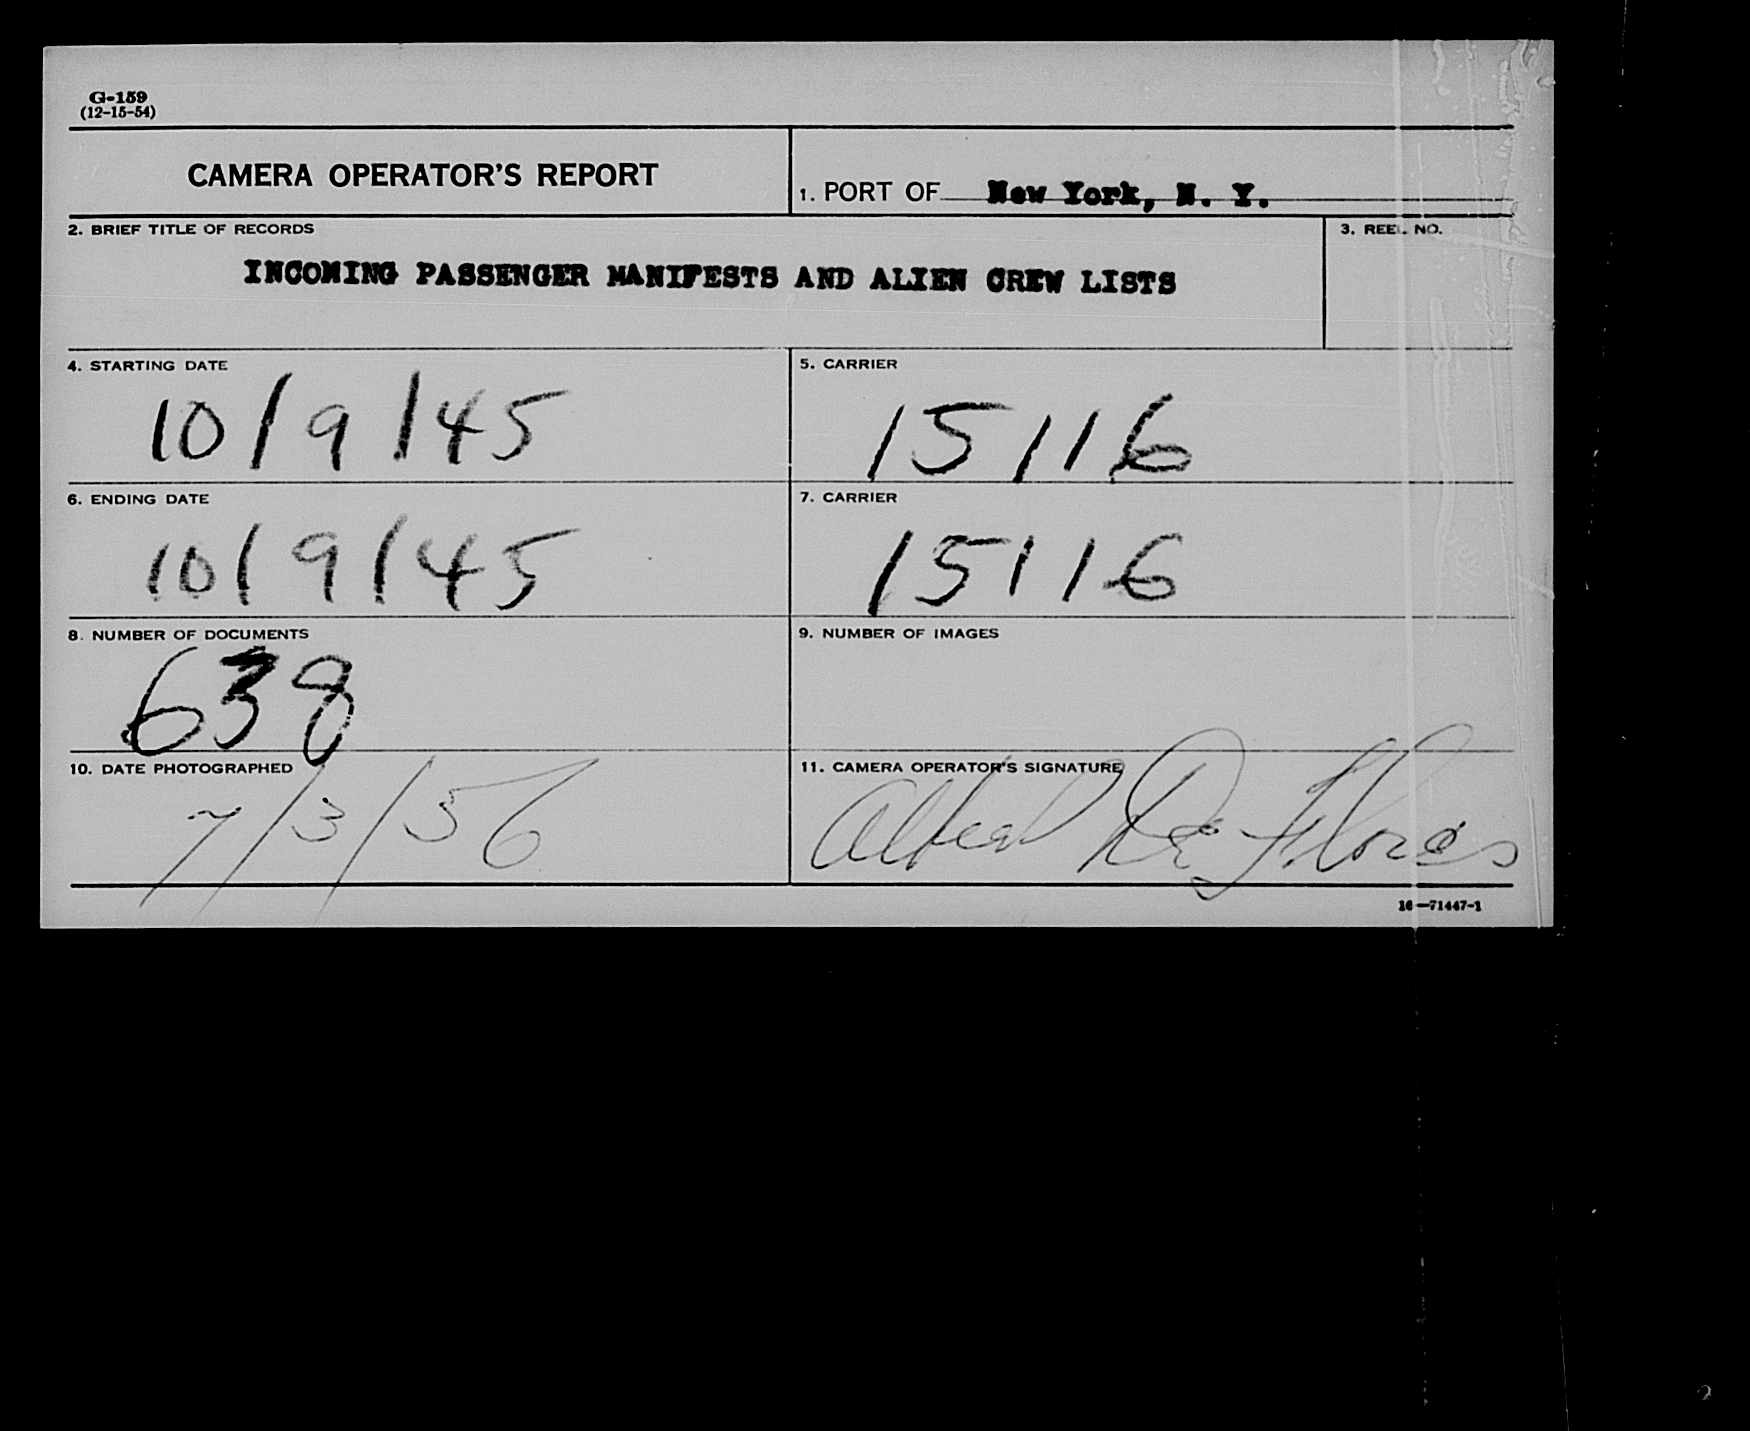 G-159
(12-15-54)
CAMERA OPERATOR'S REPORT
1. PORT OF New York, N. Y.
2. BRIEF TITLE OF RECORDS
INCOMING PASSENGER MANIFESTS AND ALIEN CREW LISTS
3. REEL NO.
4. STARTING DATE
10/9/45
5. CARRIER
15116
6. ENDING DATE
10/9/45
7. CARRIER
15116
8. NUMBER OF DOCUMENTS
638
9. NUMBER OF IMAGES
10. DATE PHOTOGRAPHED
7/3/56
11. CAMERA OPERATOR'S SIGNATURE
Albert De Flores
16—71447-1